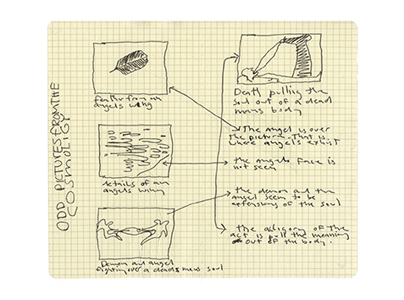 ODD PICTURES FROM THE
COSMOLIGY
feather from an
angels wing
details of an
angels wing
Demon and angel
fighting over a mans soul
Death pulling the
soul out of a dead
mans body
The angel is over
the picture. That is
where angels exhist
the angels face is
not seen
the demon and the
angel seem to be
extensions of the soul
the of the
act is pull the meaning
out of the body.